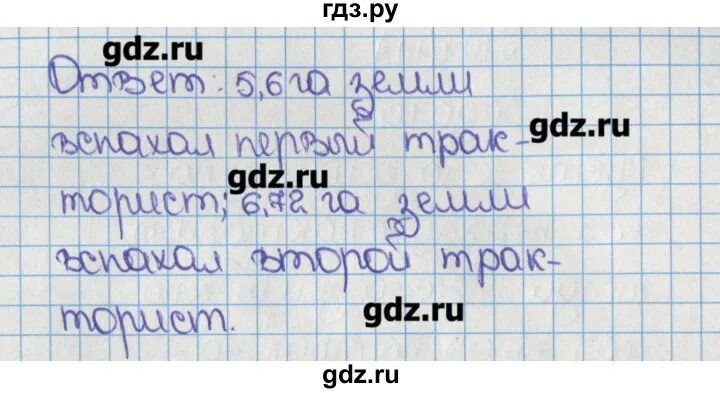 гдз.ру
gdz.ru
Ответ: 5,6 га земли
вспахал первый трак-
gdz.ru
gdz.ru
торист; 6,72 га земли
вспахал второй трак-
gdz.ru
торист.
gdz.ru